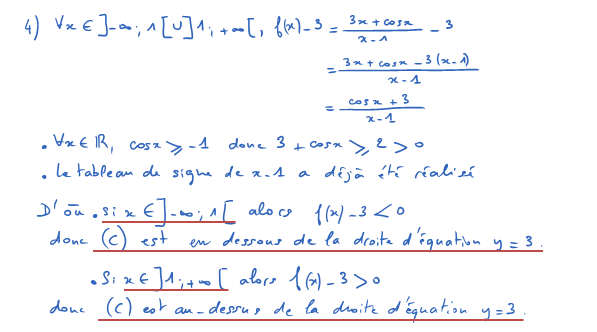 4) ∀x ∈ ]-∞; 1[ ∪ ]1; +∞[, f(x)-3 = (3x + cos x)/(x-1) - 3
= (3x + cos x - 3(x-1))/(x-1)
= (cos x + 3)/(x-1)
• ∀x ∈ ℝ, cos x ⩾ -1 donc 3 + cos x ⩾ 2 > 0
• Le tableau de signe de x-1 a déjà été réalisé
D'où • si x ∈ ]-∞; 1[ alors f(x)-3 < 0
donc (C) est en dessous de la droite d'équation y = 3.
• Si x ∈ ]1; +∞[ alors f(x)-3 > 0
donc (C) est au-dessus de la droite d'équation y = 3.